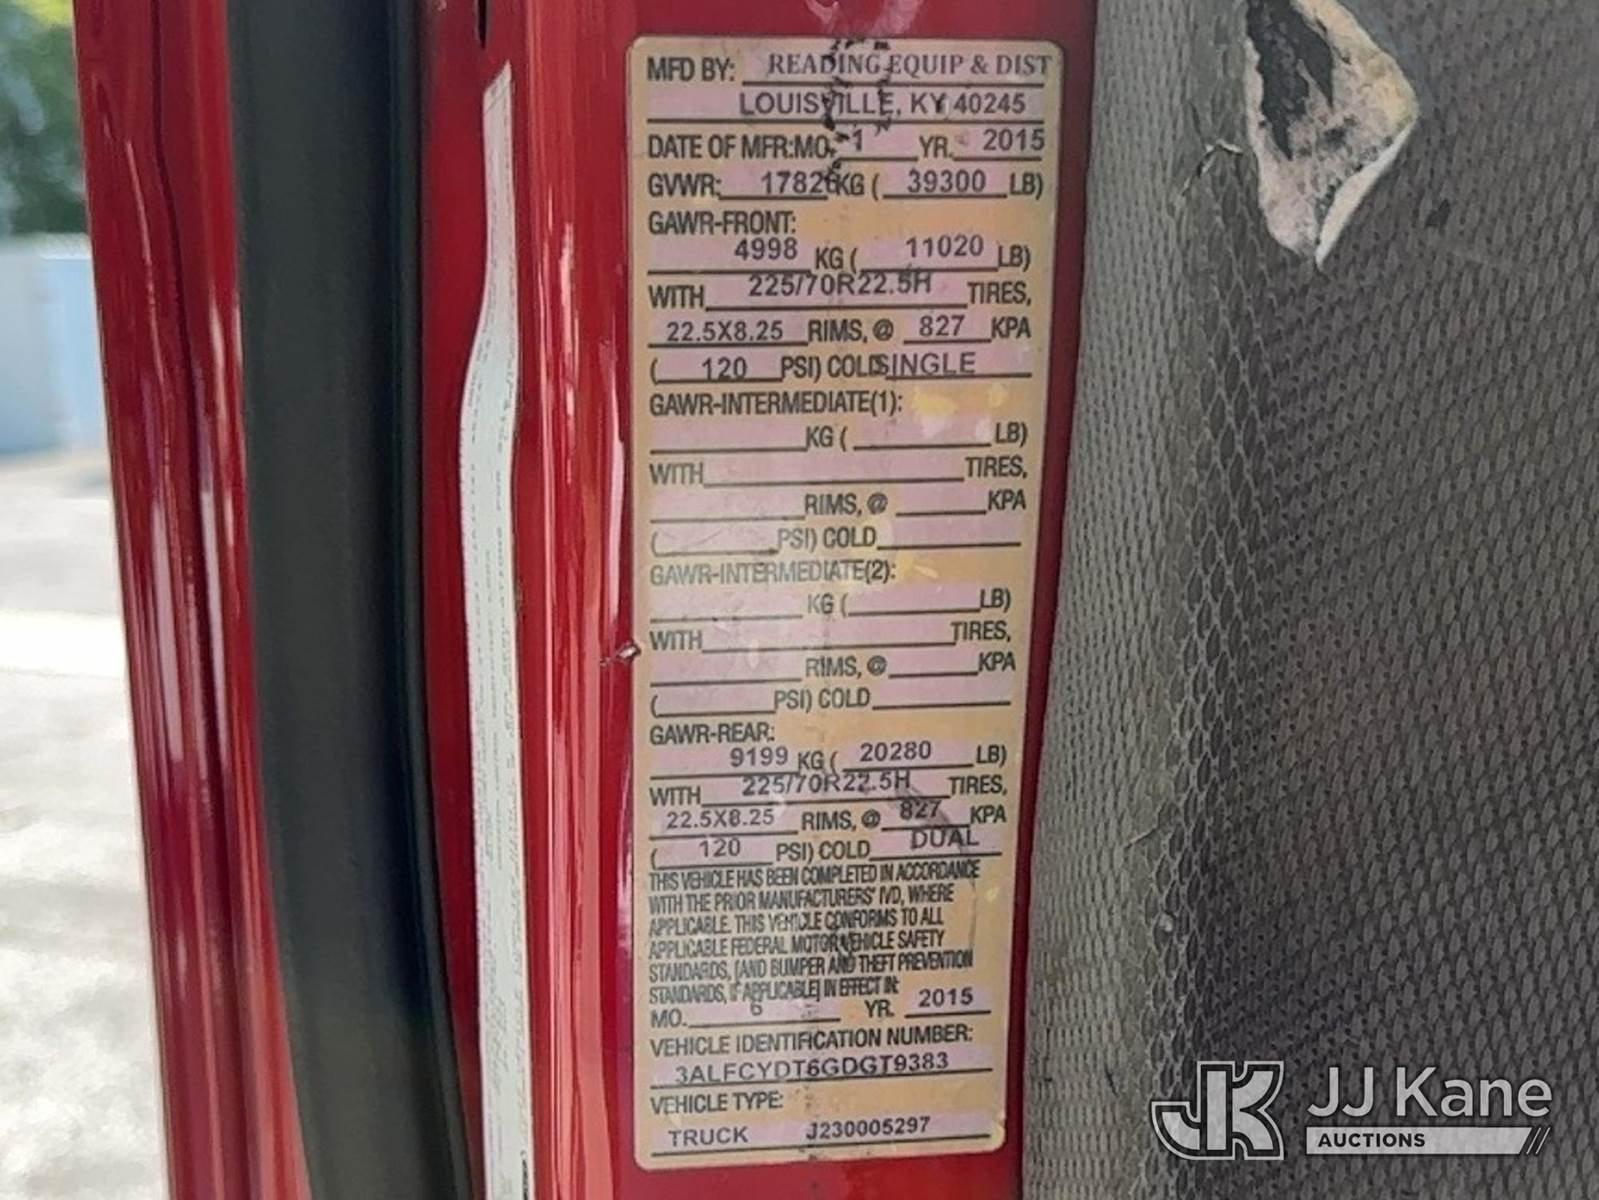 MFD BY: READING EQUIP & DIST
LOUISVILLE, KY 40245
DATE OF MFR:MO. 1 YR. 2015
GVWR: 17826 KG ( 39300 LB)
GAWR-FRONT:
4998 KG ( 11020 LB)
WITH 225/70R22.5H TIRES,
22.5X8.25 RIMS, @ 827 KPA
( 120 PSI) COLD SINGLE
GAWR-INTERMEDIATE(1):
KG ( LB)
WITH TIRES,
RIMS, @ KPA
( PSI) COLD
GAWR-INTERMEDIATE(2):
KG ( LB)
WITH TIRES,
RIMS, @ KPA
( PSI) COLD
GAWR-REAR:
9199 KG ( 20280 LB)
WITH 225/70R22.5H TIRES,
22.5X8.25 RIMS, @ 827 KPA
( 120 PSI) COLD DUAL
THIS VEHICLE HAS BEEN COMPLETED IN ACCORDANCE
WITH THE PRIOR MANUFACTURERS' IVD, WHERE
APPLICABLE. THIS VEHICLE CONFORMS TO ALL
APPLICABLE FEDERAL MOTOR VEHICLE SAFETY
STANDARDS, [AND BUMPER AND THEFT PREVENTION
STANDARDS, IF APPLICABLE] IN EFFECT IN:
MO. 6 YR. 2015
VEHICLE IDENTIFICATION NUMBER:
3ALFCYDT6GDGT9383
VEHICLE TYPE:
TRUCK J230005297
JK JJ Kane
AUCTIONS